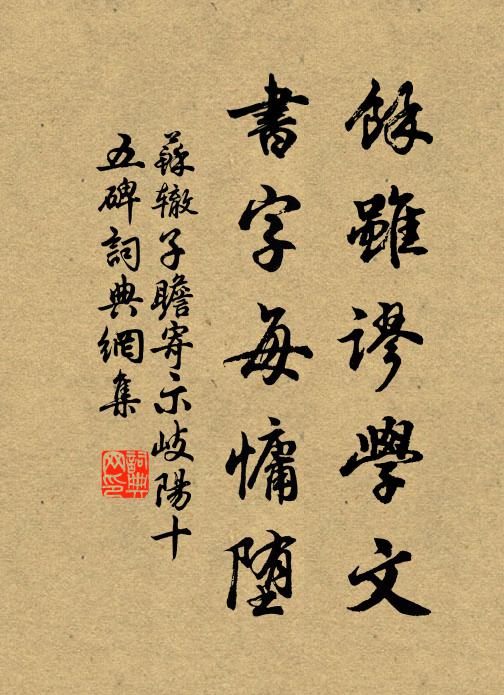 餘雖謬學文
書字每慵堕
蘇辙子瞻寄示岐陽十
五碑詞典網集
詞典
网印